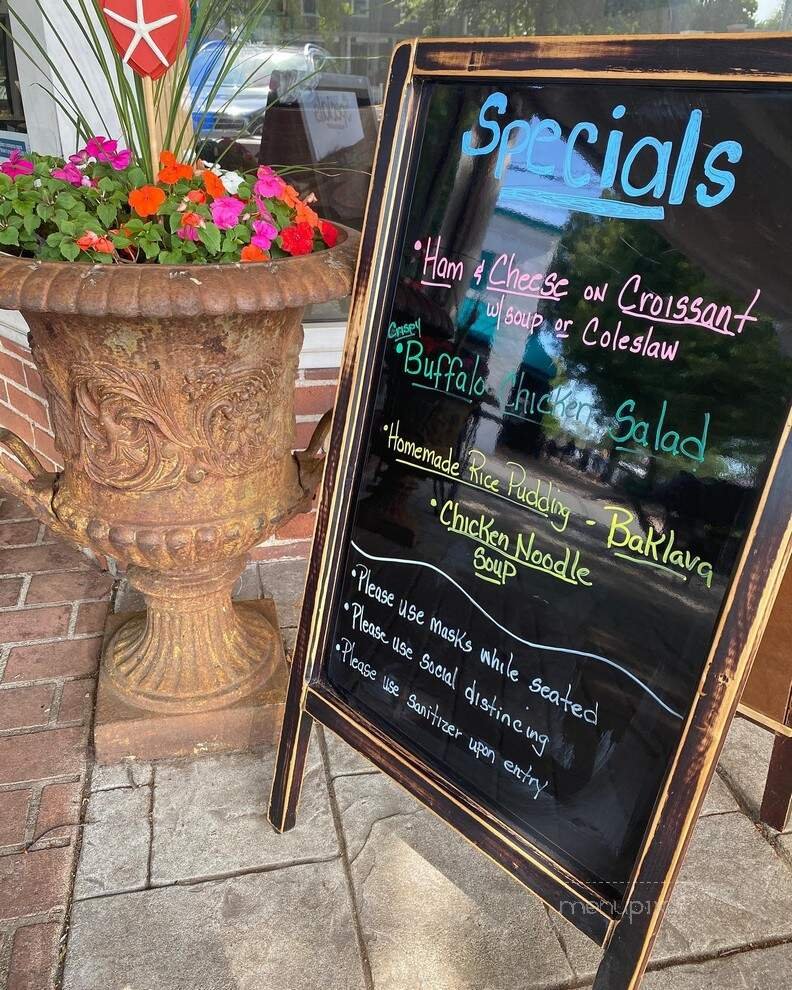 Specials
• Ham & Cheese on Croissant
w/ soup or Coleslaw
Crispy
• Buffalo Chicken Salad
• Homemade Rice Pudding - Baklava
• Chicken Noodle
Soup
• Please use masks while seated
• Please use social distincing
• Please use sanitizer upon entry